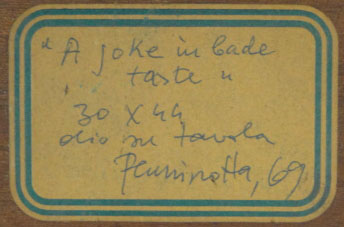 " A joke in bade
taste "
30 x 44
olio su tavola
Pluminotta, 69